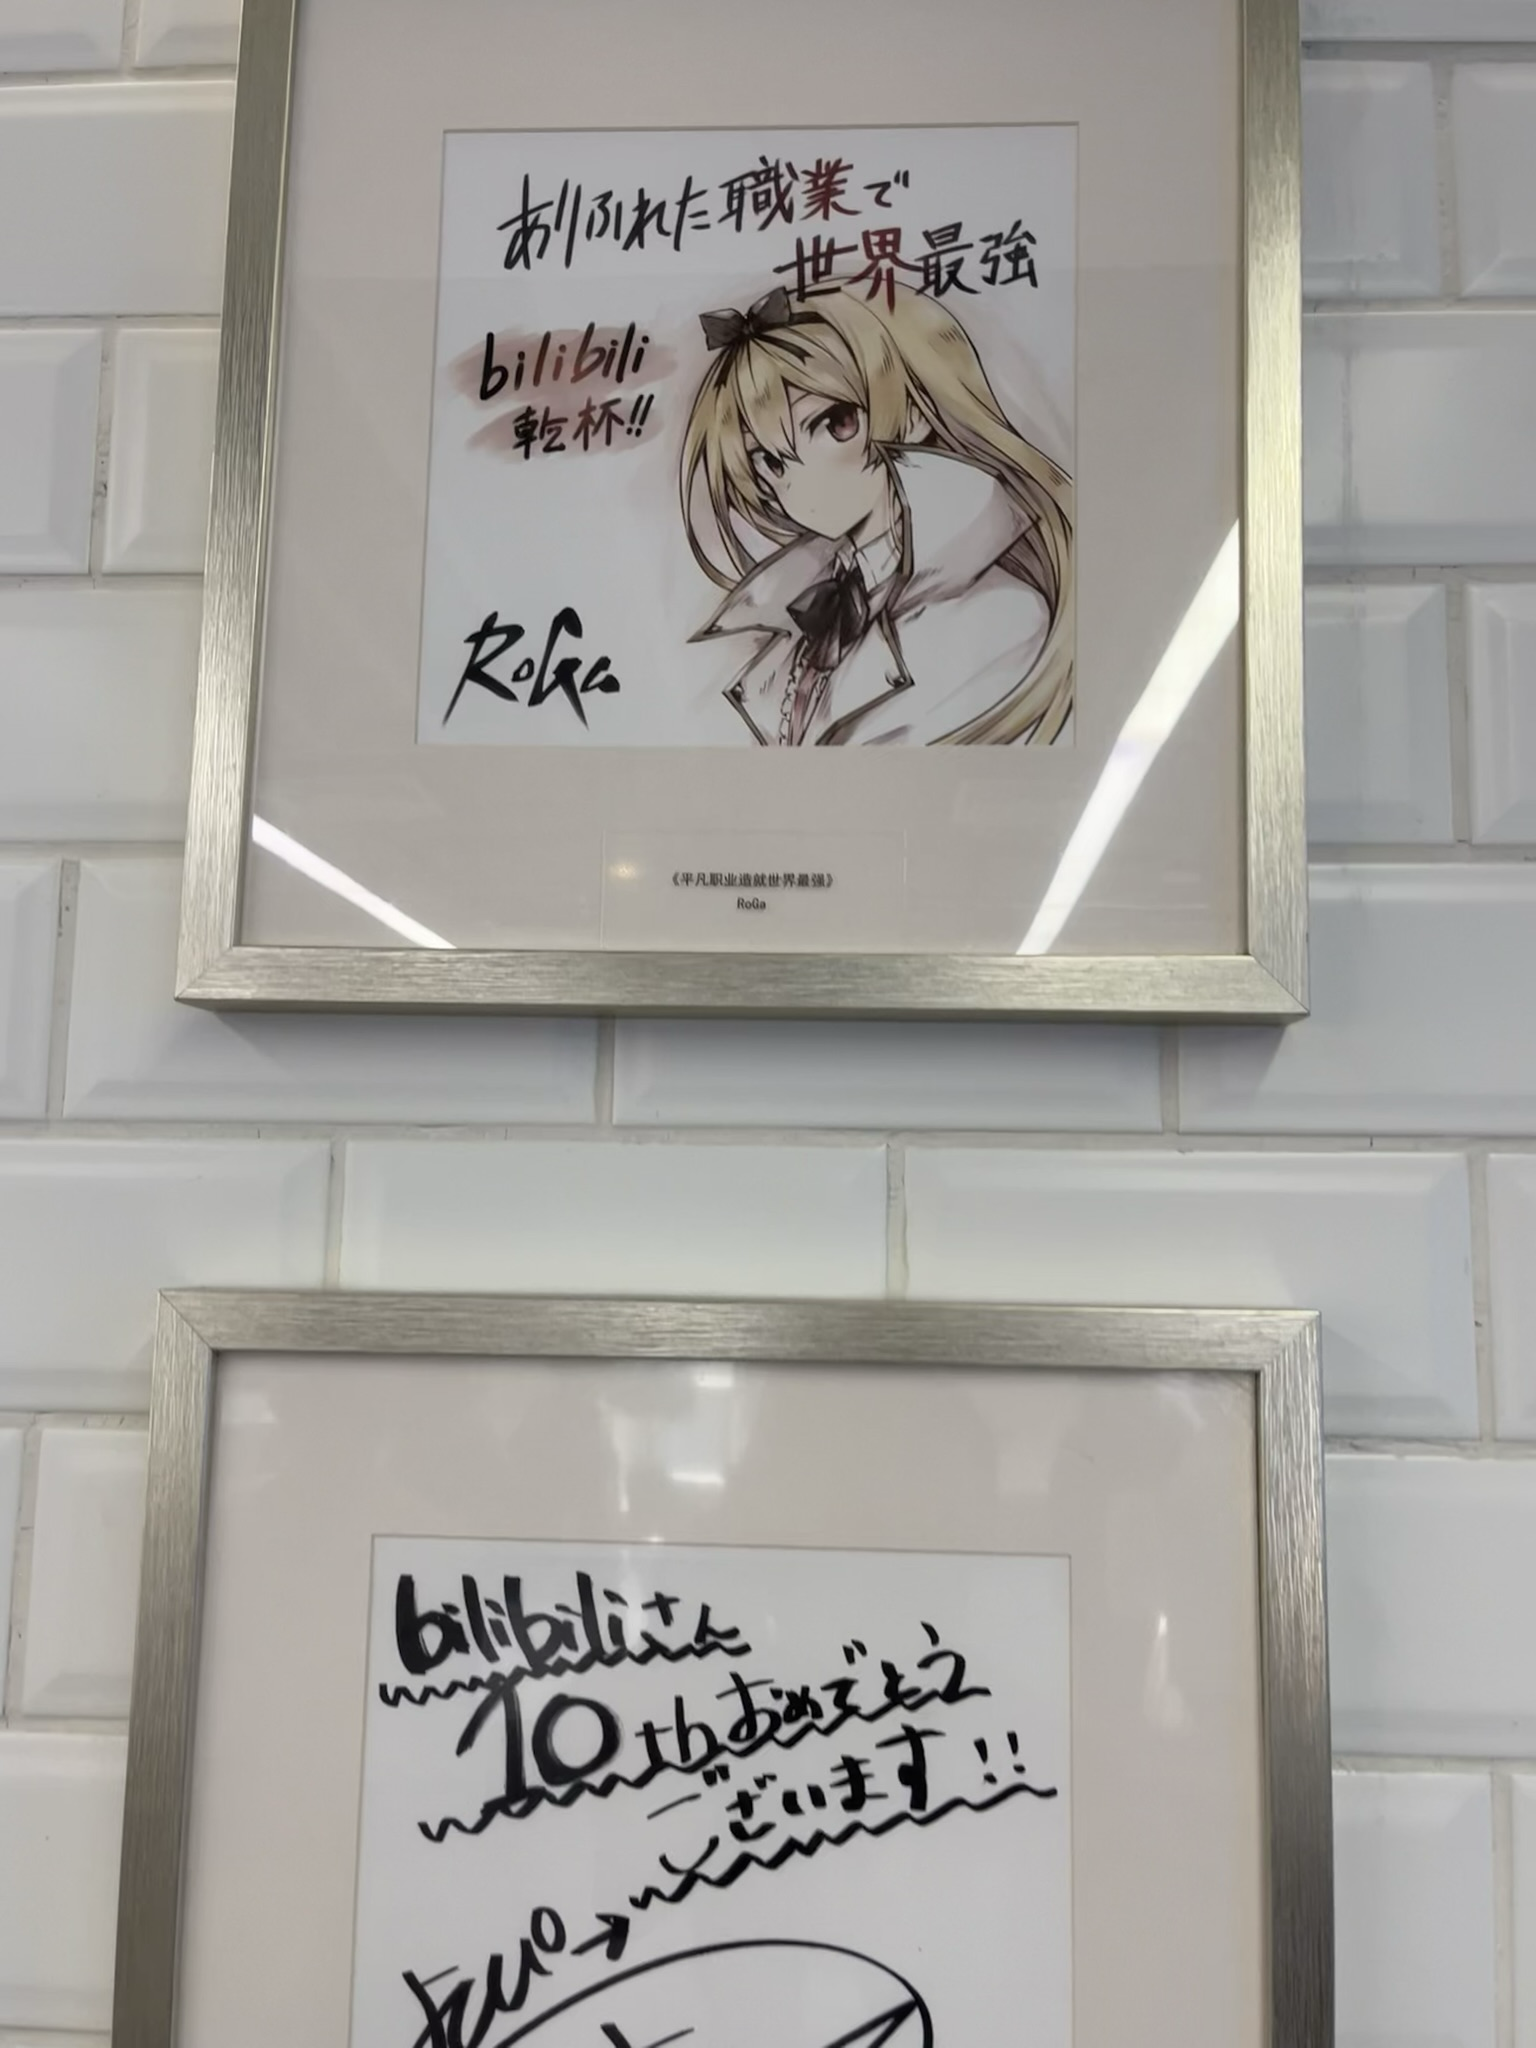 ありふれた職業で
世界最強
bilibili
乾杯!!
RoGa
《平凡职业造就世界最强》
RoGa
bilibiliさん
10thおめでとう
ございます!!